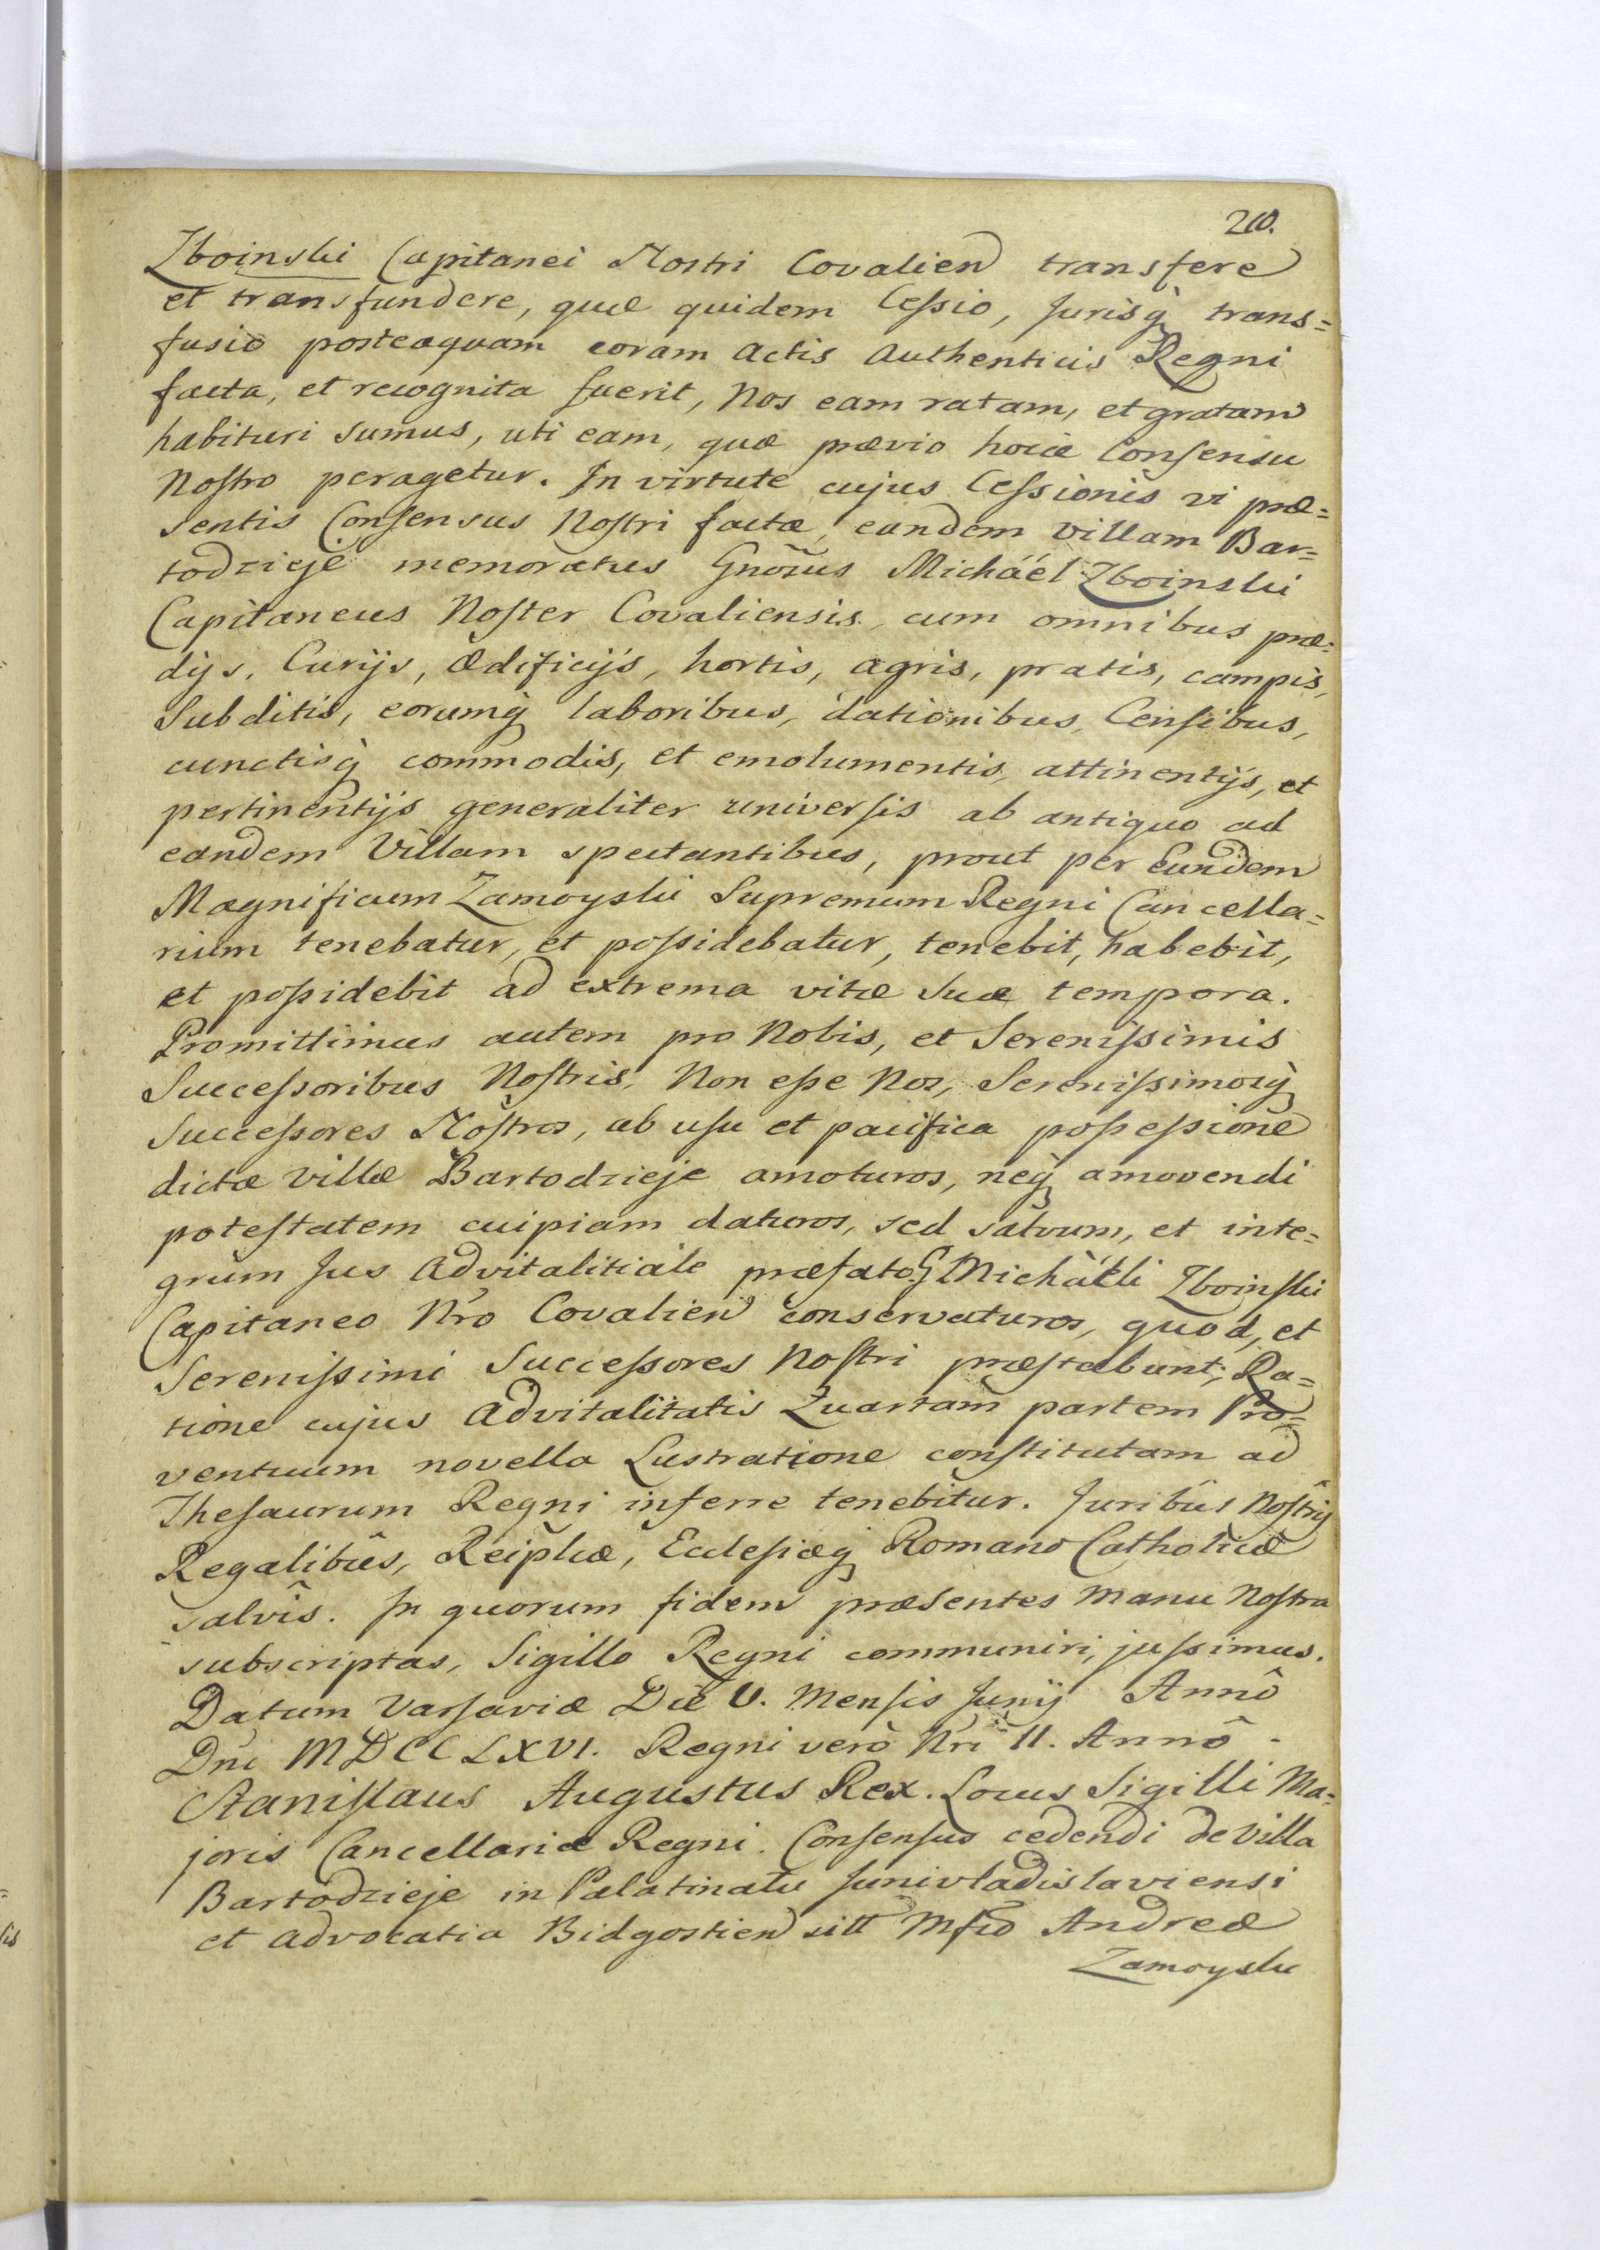 210.
Zboinski Capitanei Nostri Covalien transfere
et transfundere, quæ quidem Cessio, Jurisq́ trans=
fusio posteaquam coram Actis Authenticis Regni
facta, et recognita fuerit, Nos eam ratam, et gratam
habituri sumus, uti eam, quæ prævio hocce Consensu
Nostro peragetur. In virtute cujus Cessionis vi præ=
sentis Consensus Nostri factæ, eandem Villam Bar=
todzieje memoratus Gnosus Michaél Zboinski
Capitaneus Noster Covaliensis, cum omnibus præ=
dijs, Curijs, Ædificijs, hortis, agris, pratis, campis,
Subditis, eorumq́ laboribus, dationibus, Censibus,
cunctisq́ commodis, et emolumentis, attinentijs, et
pertinentijs generaliter universis ab antiquo ad
eandem Villam spectantibus, prout per Eundem
Magnificum Zamoyski Supremum Regni Cancella=
rium tenebatur, et possidebatur, tenebit, habebit,
et possidebit ad extrema vitæ suæ tempora.
Promittimus autem pro Nobis, et Serenissimis
Successoribus Nostris, Non esse Nos, Serenissimosq́
Successores Nostros, ab usu et pacifica possessione
dictæ Villæ Bartodzieje amoturos, neq́ amovendi
potestatem cuipiam daturos, sed salvum, et inte=
grum Jus Advitalitiale præfato G Michaèli Zboinski
Capitaneo Nro Covalien conservaturos, quod, et
Serenissimi Successores Nostri præstabunt; Ra=
tione cujus Advitalitatis Quartam partem Pro=
ventuum novella Lustratione constitutam ad
Thesaurum Regni inferre tenebitur. Juribûs Nostrîs
Regalibûs, Reiplicæ, Ecclesiæq́ Romano Catholicæ
salvîs. In quorum fidem præsentes Manu Nostra
subscriptas, Sigillo Regni communiri, jussimus.
Datum Varsaviæ Die V. Mensis Junij Annô
Dni MDCCLXVI. Regni verò Nri II. Annô.
Stanislaus Augustus Rex. Locus Sigilli Ma=
joris Cancellariæ Regni. Consensus cedendi de Villa
Bartodzieje in Palatinatu Junivladislaviensi
et Advocatia Bidgostien sitt Mfco Andreæ
Zamoyski